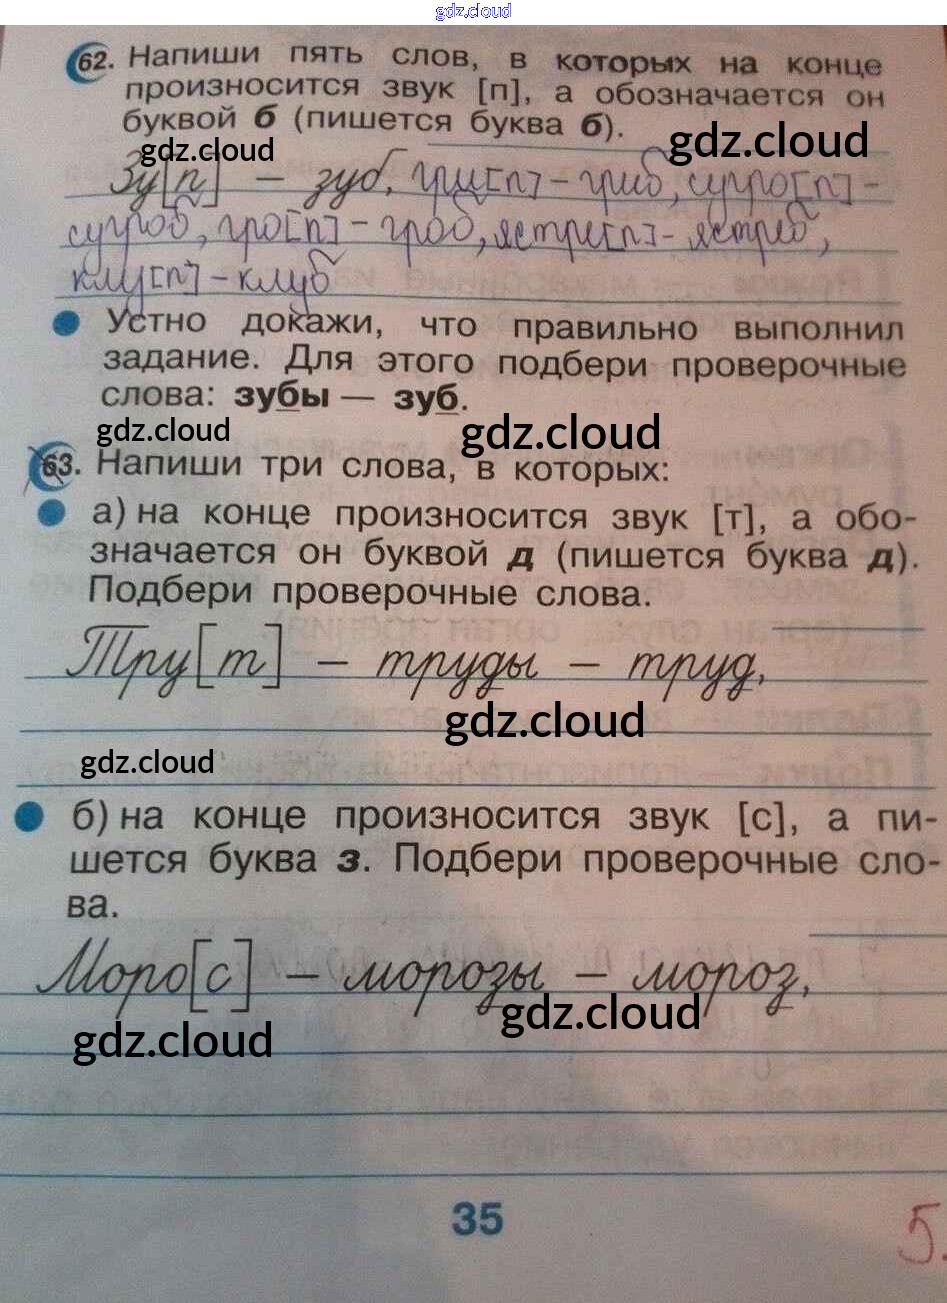 gdz.cloud
62. Напиши пять слов, в которых на конце
произносится звук [п], а обозначается он
буквой б (пишется буква б).
gdz.cloud
gdz.cloud
Зу[п] – зуб, гри[п] – гриб, сугро[п] –
сугроб, гро[п] – гроб, ястре[п] – ястреб,
клу[п] – клуб
Устно докажи, что правильно выполнил
задание. Для этого подбери проверочные
слова: зубы — зуб.
gdz.cloud
gdz.cloud
63. Напиши три слова, в которых:
а) на конце произносится звук [т], а обо-
значается он буквой д (пишется буква д).
Подбери проверочные слова.
Тру[т] – труды – труд,
gdz.cloud
gdz.cloud
б) на конце произносится звук [с], а пи-
шется буква з. Подбери проверочные сло-
ва.
Моро[с] – морозы – мороз,
gdz.cloud
gdz.cloud
35
5.